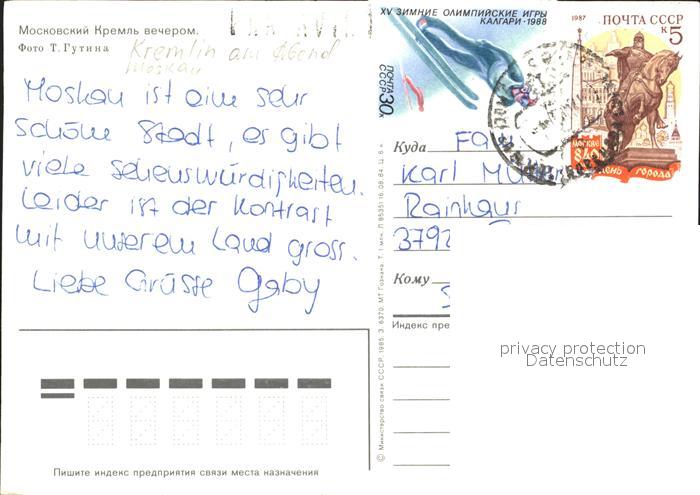 Московский Кремль вечером.
Фото Т. Гутина
Kremlin am Abend
Moskau
Moskau ist eine sehr
schöne Stadt, es gibt
viele Sehenswürdigkeiten.
Leider ist der Kontrast
mit unserem Land gross.
Liebe Grüsse Gaby
Пишите индекс предприятия связи места назначения
© Министерство связи СССР. 1985. З. 6370. МТ Гознака. Т. 1 млн.
XV ЗИМНИЕ ОЛИМПИЙСКИЕ ИГРЫ
КАЛГАРИ·1988
ПОЧТА СССР 30к
1987
ПОЧТА СССР
к 5
МОСКВЕ
840
ДЕНЬ ГОРОДА
Куда Fam
Karl M
Rainhaus
3792
Кому
S
Индекс пре
privacy protection
Datenschutz